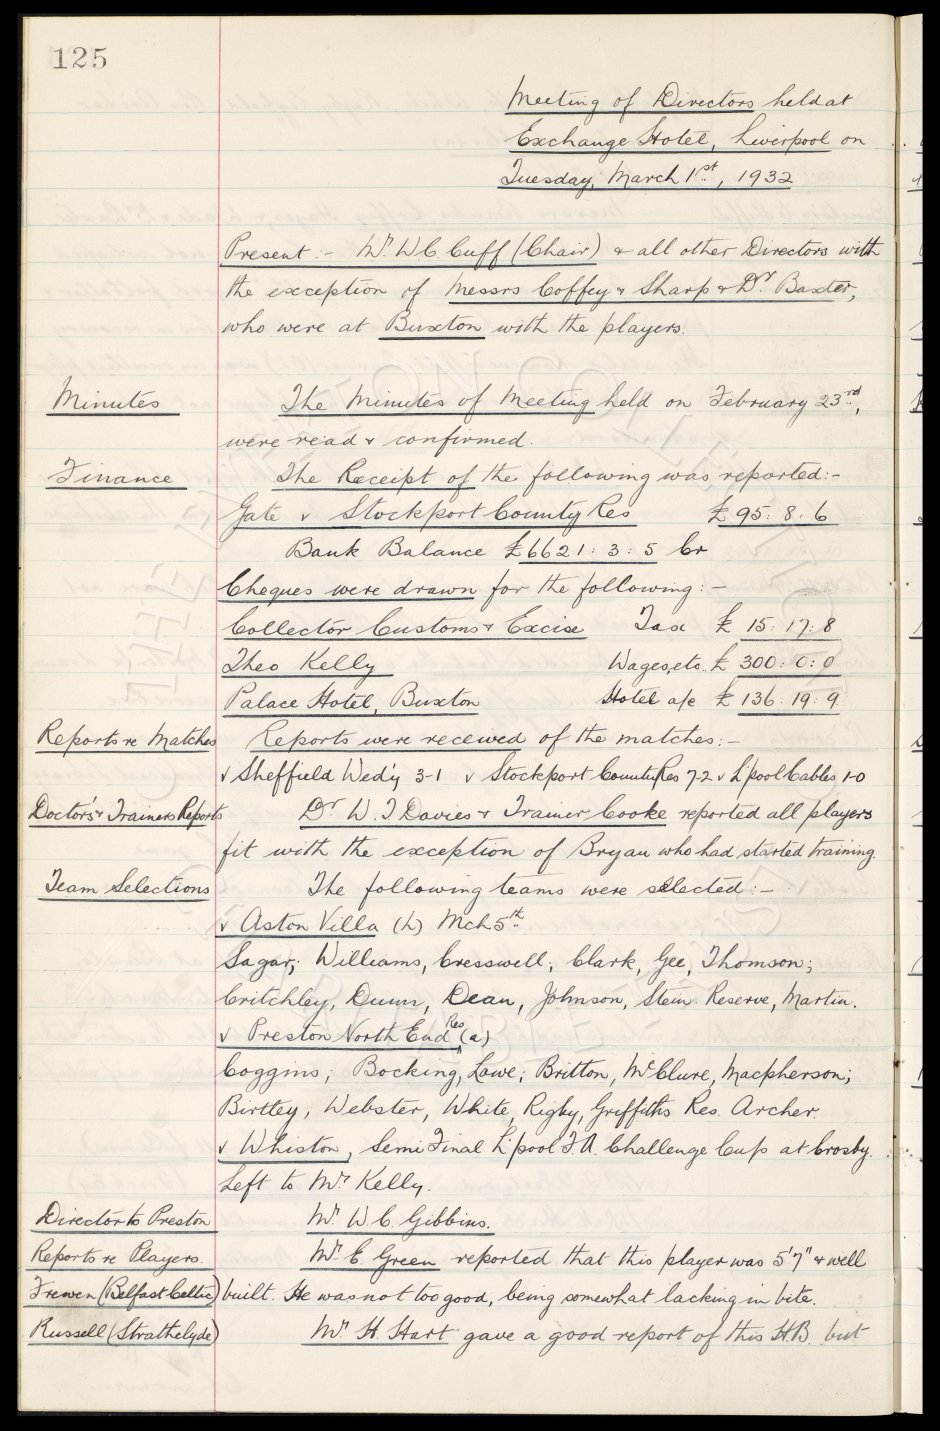 125
Meeting of Directors held at
Exchange Hotel, Liverpool on
Tuesday, March 1st, 1932
Present:- Mr. W.C. Cuff (Chair) & all other Directors with
the exception of Messrs Coffey & Sharp & Dr. Baxter,
who were at Buxton with the players.
Minutes The Minutes of Meeting held on February 23rd,
were read & confirmed.
Finance The Receipt of the following was reported:-
Gate v Stockport County Res £95:8.6
Bank Balance £6621:3:5 Cr
Cheques were drawn for the following:-
Collector Customs & Excise Tax £15:17:8
Theo Kelly Wages, etc. £300:0:0
Palace Hotel, Buxton Hotel a/c £136:19:9
Reports re Matches Reports were received of the matches:-
v Sheffield Wed'y 3-1 v Stockport County Res 7-2 v L'pool Cables 1-0
Doctor's & Trainers Reports Dr W.J Davies & Trainer Cooke reported all players
fit with the exception of Bryan who had started training.
Team Selections The following teams were selected:-
v Aston Villa (h) Mch 5th
Sagar; Williams, Cresswell; Clark, Gee, Thomson;
Critchley, Dunn, Dean, Johnson, Stein. Reserve, Martin.
v Preston North End Res (a)
Coggins; Bocking, Lowe; Britton, McClure, Macpherson;
Birtley, Webster, White, Rigby, Griffiths Res. Archer.
v Whiston, Semi Final L'pool F.A. Challenge Cup at Crosby.
Left to Mr Kelly.
Director to Preston Mr. W.C. Gibbins.
Reports re Players. Mr. E. Green reported that this player was 5'7" & well
Frewen (Belfast Celtic) built. He was not too good, being somewhat lacking in bite.
Russell (Strathclyde) Mr. H. Hart gave a good report of this H.B. but